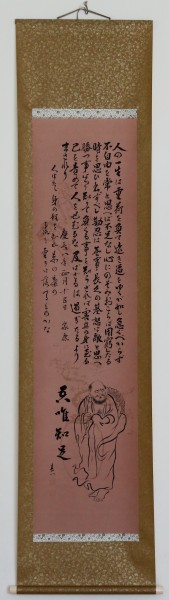 人の一生は重荷を負て遠き道を行くが如し急ぐべからず
不自由を常と思へば不足なし心にのぞみおこらば困窮したる
時を思ひ出すべし堪忍は無事長久の基怒は敵と思へ
勝つ事ばかり知て負る事を知らざれば害其の身に至る
己を責めて人を責むるな及ばざるは過ぎたるより
まされり
慶長八年正月十五日 家康
人はただ身の程を知れ草の葉の
露も重きは落つるものかな
吾唯知足